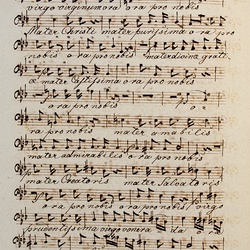 virgo virginum ora pro nobis
Mater Christi mater purissima ora pro
nobis ora pro nobis mater divinæ grati
æ mater castissima ora pro nobis
ora pro nobis o
ra pro nobis mater amabilis
mater admirabilis ora pro nobis
mater Creatoris mater Salvatoris
ora pro nobis ora pro nobis virgo
prudentissima virgo venera da